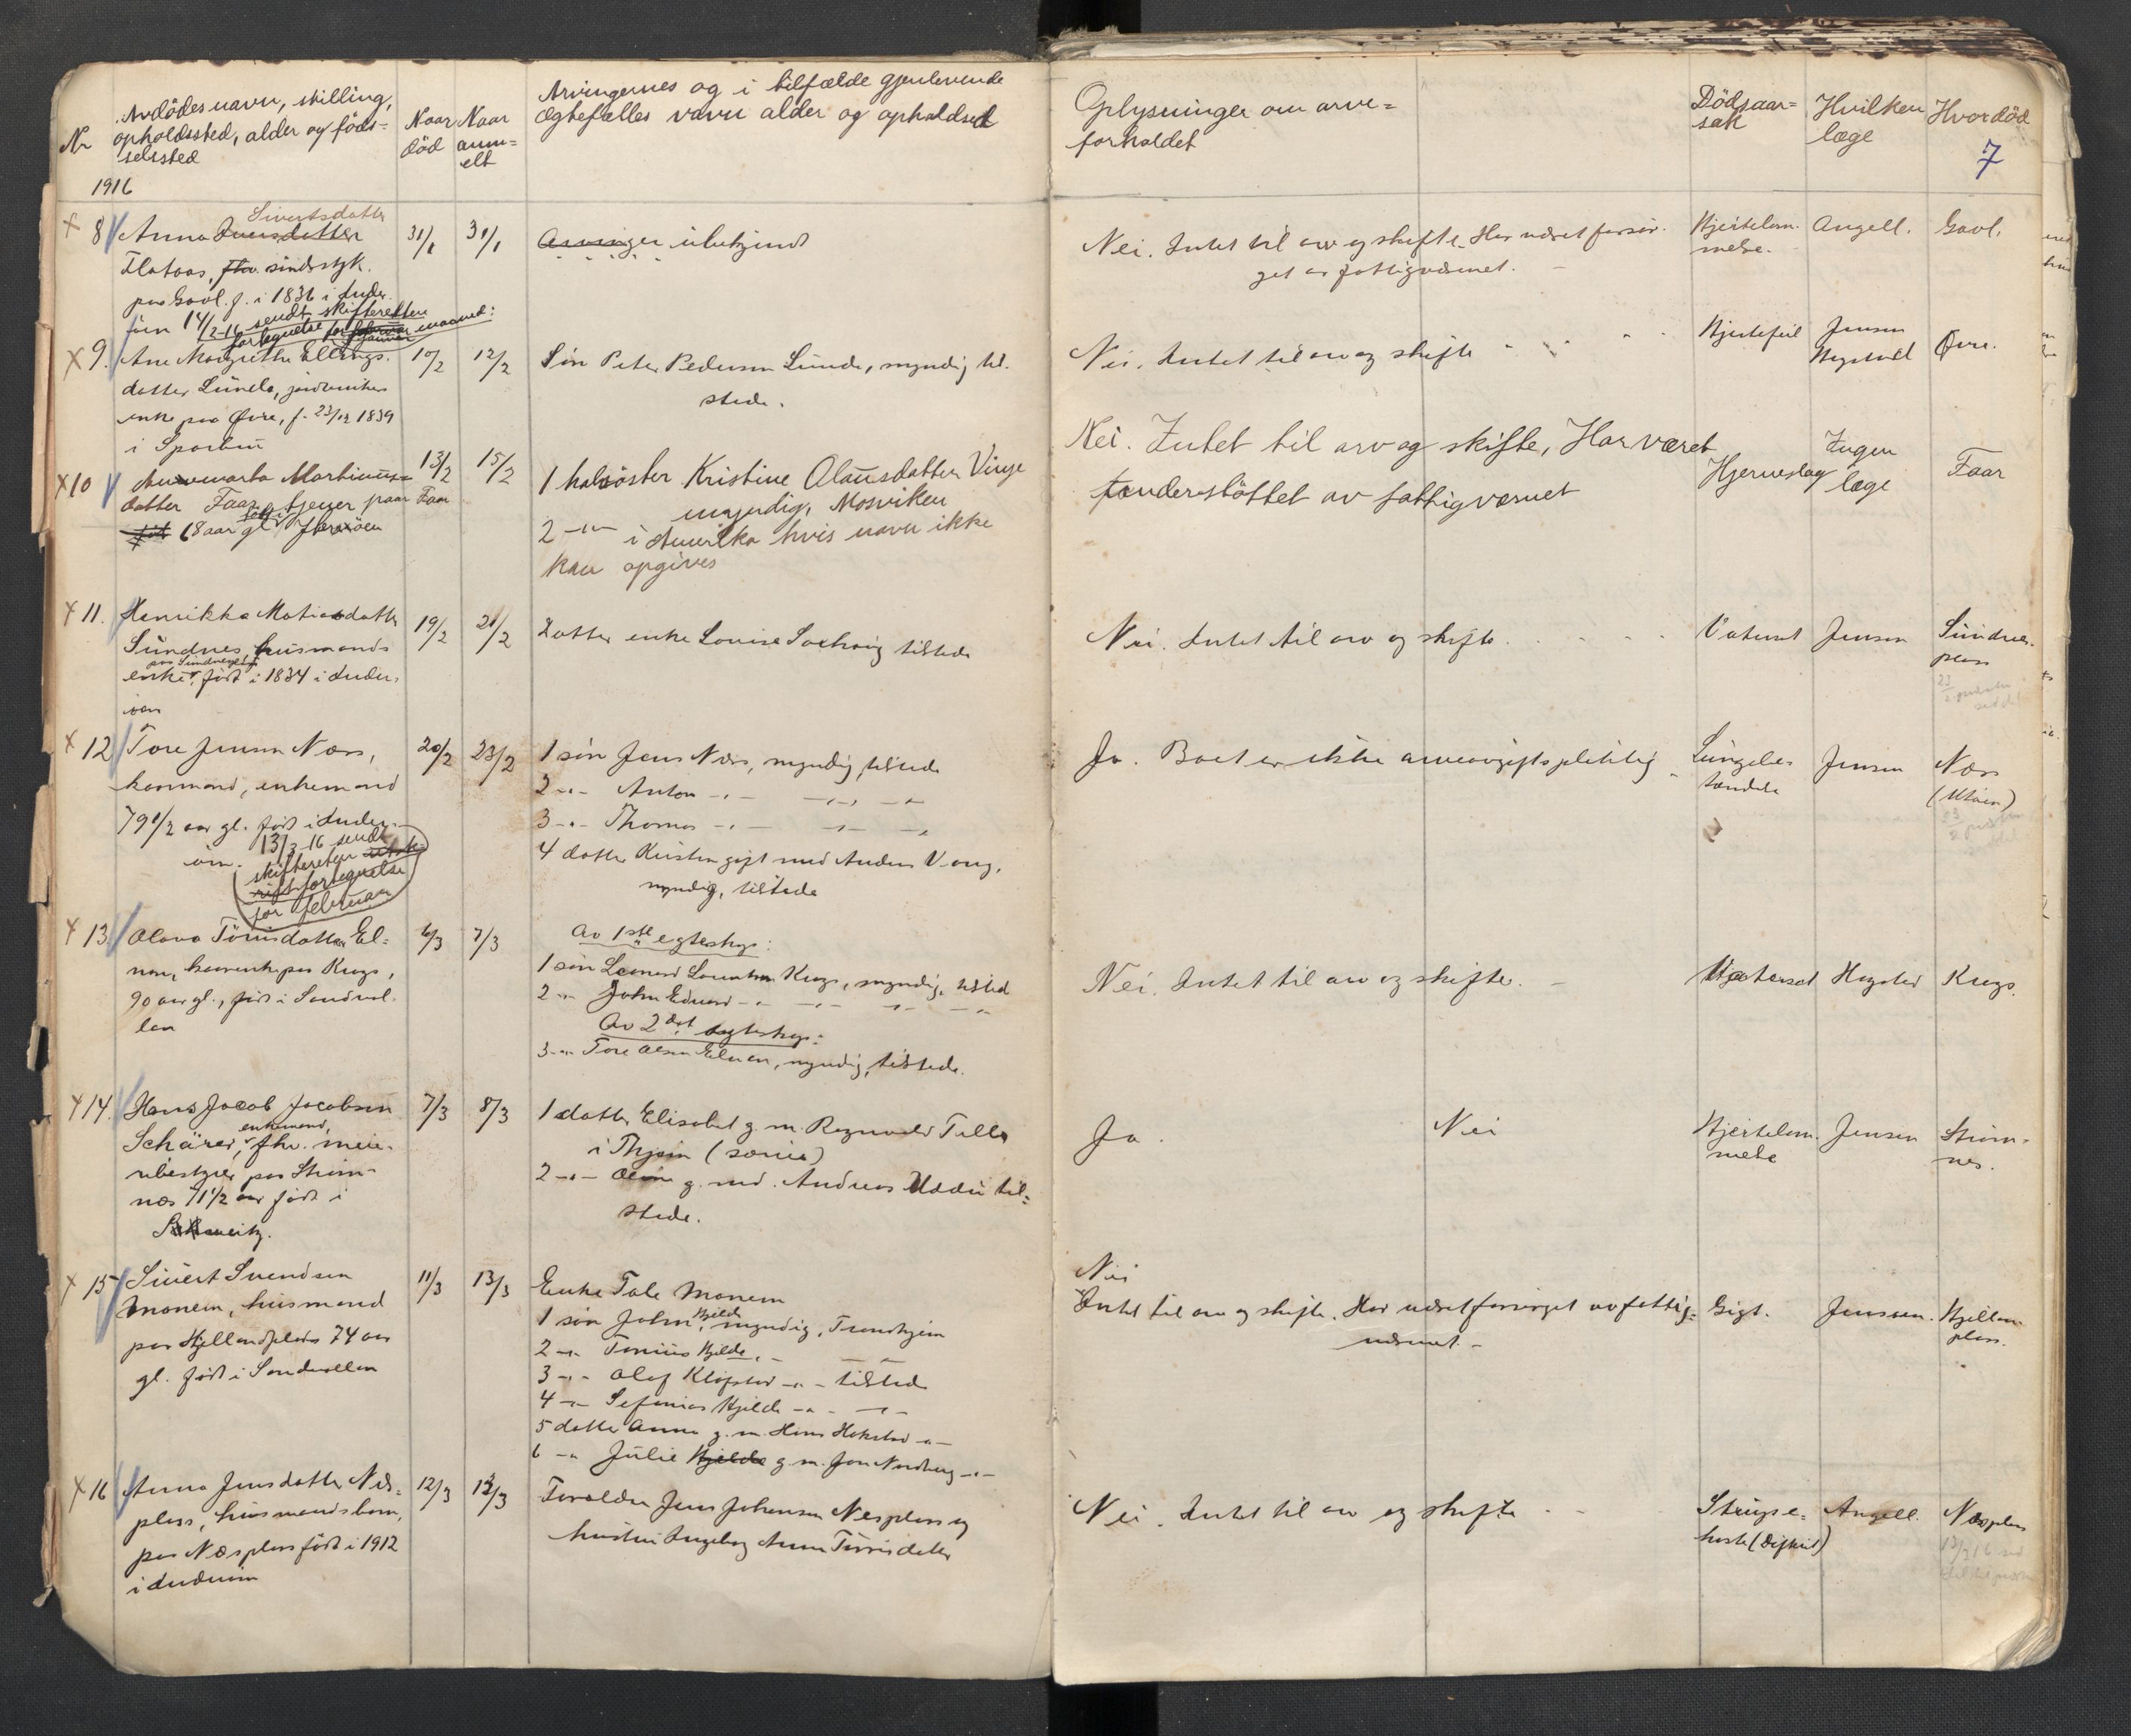 Nr
Avdödes navn, stilling,
opholdssted, alder og föds=
selssted
1916
Naar
död
Naar
anm=
elt
Arvingernes og i tilfælde gjenlevende
Ægtefælles navn alder og opholdssted
Oplysninger om arve=
forholdet
Dödsaar=
sak
Hvilken
læge
Hvor död
7
× 8
Sivertsdatter
Anna Iversdatter
Flataas, fhv. sindssyk.
paa Gavl. f. i 1836 i Inder
öen
31/1
31/1
Arvinger ubekjend
Nei. Intet til arv og skifte. Har været forsör-
get av fattigvæsenet. -
Hjertelam-
melse.
Angell.
Gavl.
14/2-16 sendt skifteretten
fortegnelse for januar maaned:
× 9.
Ane Margrethe Ellings-
datter Lunde, jordbruker
enke paa Øvre, f. 23/12 1839
i Sparbu
10/2
12/2
Sön Peter Pedersen Lunde, myndig til-
stede.
Nei. Intet til arv og skifte
Hjertefeil
Jensen
Hegstad
Øvre.
×10
Annemarta Martinus=
datter Faar, tjener paa Faar
födt 68 aar gl
13/2
15/2
1 halvsöster Kristine Olausdatter Vinge
myndig, Mosviken
2 -"- i Amerika hvis navn ikke
kan opgives
Nei. Intet til arv og skifte, Har været
understöttet av fattigvæsnet
Hjerneslag
Ingen
læge
Faar
× 11.
Henrikka Matiasdatter
Sundnes, husmands
paa Sundnespl.
enke, födt i 1834 i Inder-
öen
19/2
21/2
Datter enke Lovise Solhaug tilstede
Nei. Intet til arv og skifte.
Vatersot
Jensen
Sundnes-
plass
× 12
Tore Jensen Næss,
kaarmand, enkemand
79 1/2 aar gl. födt i Inder-
öen.
20/2
23/2
1 sön Jens Næss, myndig, tilstede
2 -"- Anton -"- -"- -"-
3 -"- Thomas -"- -"- -"-
4 datter Kirsten gift med Anders Vang,
myndig, tilstede
Ja. Boet er ikke arveavgiftspliktig
Lungebe-
tændelse
Jensen
Næss
(Utöen)
13/3 16 sendt
skifteretten
fortegnelse
for februar
× 13
Olava Tönnisdatter El=
nan, kaarenke paa Krogs,
90 aar gl., födt i Sandvol-
lan
6/3
7/3
Av 1ste egteskap:
1 sön Leonard Lorentsen Krogs, myndig, tilsted
2 -"- John Edvard -"- -"- -"- -"-
Av 2det egteskap:
3 -"- Tore Olsen Elnan, myndig, tilstede.
Nei. Intet til arv og skifte. -
Vatersot
Hegstad
Krogs.
× 14.
Hans Jacob Jacobsen
enkemand,
Schärer, fhv. meie-
ribestyrer paa Ström-
nes 71 1/2 aar födt i
Schweitz.
7/3
8/3
1 datter Elisabet g. m. Ragnvald Teller
i Thjem
2 -"- Oline g. med. Andreas Uddu til=
stede.
Ja.
Nei
Hjertelam-
melse
Jensen
Ström-
nes.
× 15
Sivert Svendsen
Monem, husmand
paa Hjellanplads 74 aar
gl. födt i Sandvollan
11/3
13/3
Enke Tale Monem
1 sön John Hjelde, myndig, Trondhjem
2 -"- Tonius Hjelde, -"- -"-
3 -"- Olaf Klöpstad -"- tilstede
4 -"- Sefanias Hjelde -"- -"-
5 datter Anna g. m. Hans Hokstad -"-
6 -"- Julie Hjelde g. m. Jon Nordberg -"-
Nei
Intet til arv og skifte. Har været forsörget av fattig=
væsenet. -
Gigt.
Jenssen.
Hjellan-
plass.
× 16
Anna Jensdatter Næs=
plass, husmandsbarn,
paa Næsplass födt i 1912
i Inderöen
12/3
13/3
Foreldre Jens Johansen Næsplass og
hustru Ingeborg Anna Tönnisdatter
Nei. Intet til arv og skifte
Strupe=
hoste (Difterit)
Angell.
Næsplass